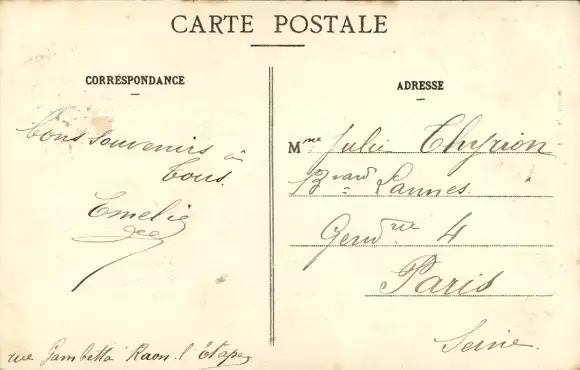 CARTE POSTALE
CORRESPONDANCE
bons souvenirs à
tous.
Emelie
rue Gambetta Raon-l'Etape
ADRESSE
Mme Julie Thyrion
Bvard Lannes
Gendrie 4
Paris
Seine.